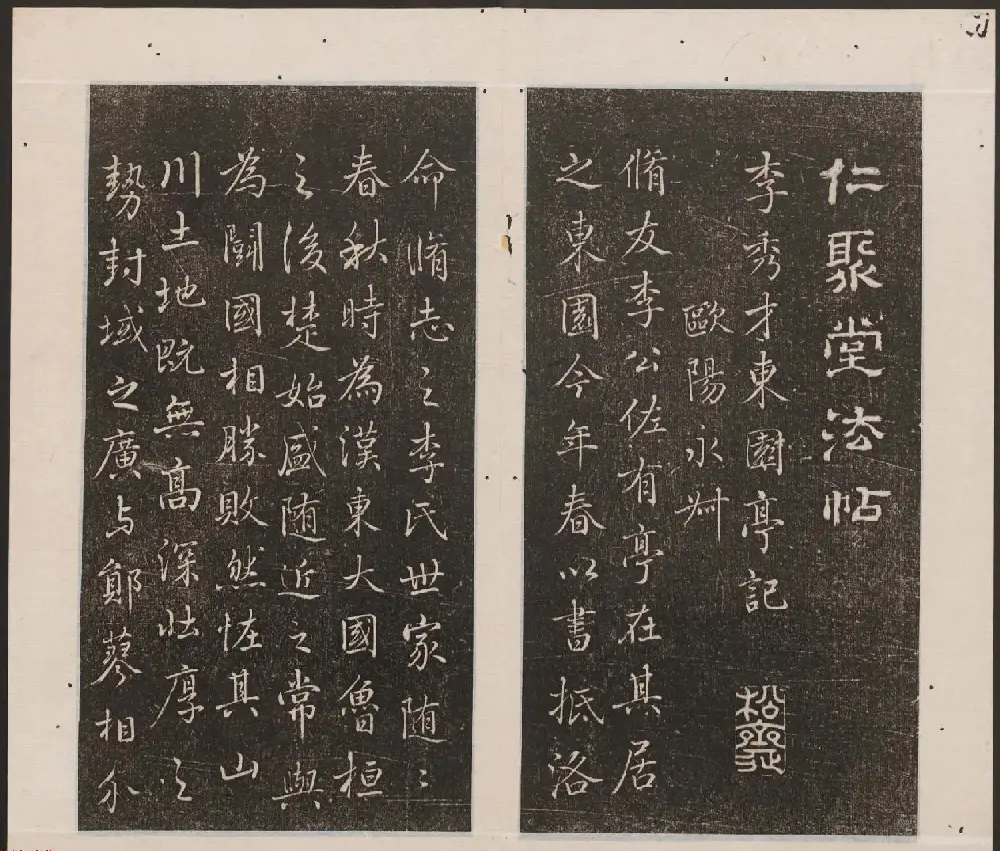 仁聚堂法帖
李秀才東園亭記
歐陽永叔
松齋
脩友李公佐有亭在其居
之東園今年春以書抵洛
命脩志之李氏世家随〻
春秋時為漢東大國魯桓
之後楚始盛随近之常與
為鬭國相勝敗然怪其山
川土地既無高深壯厚之
勢封域之廣与鄖蓼相介